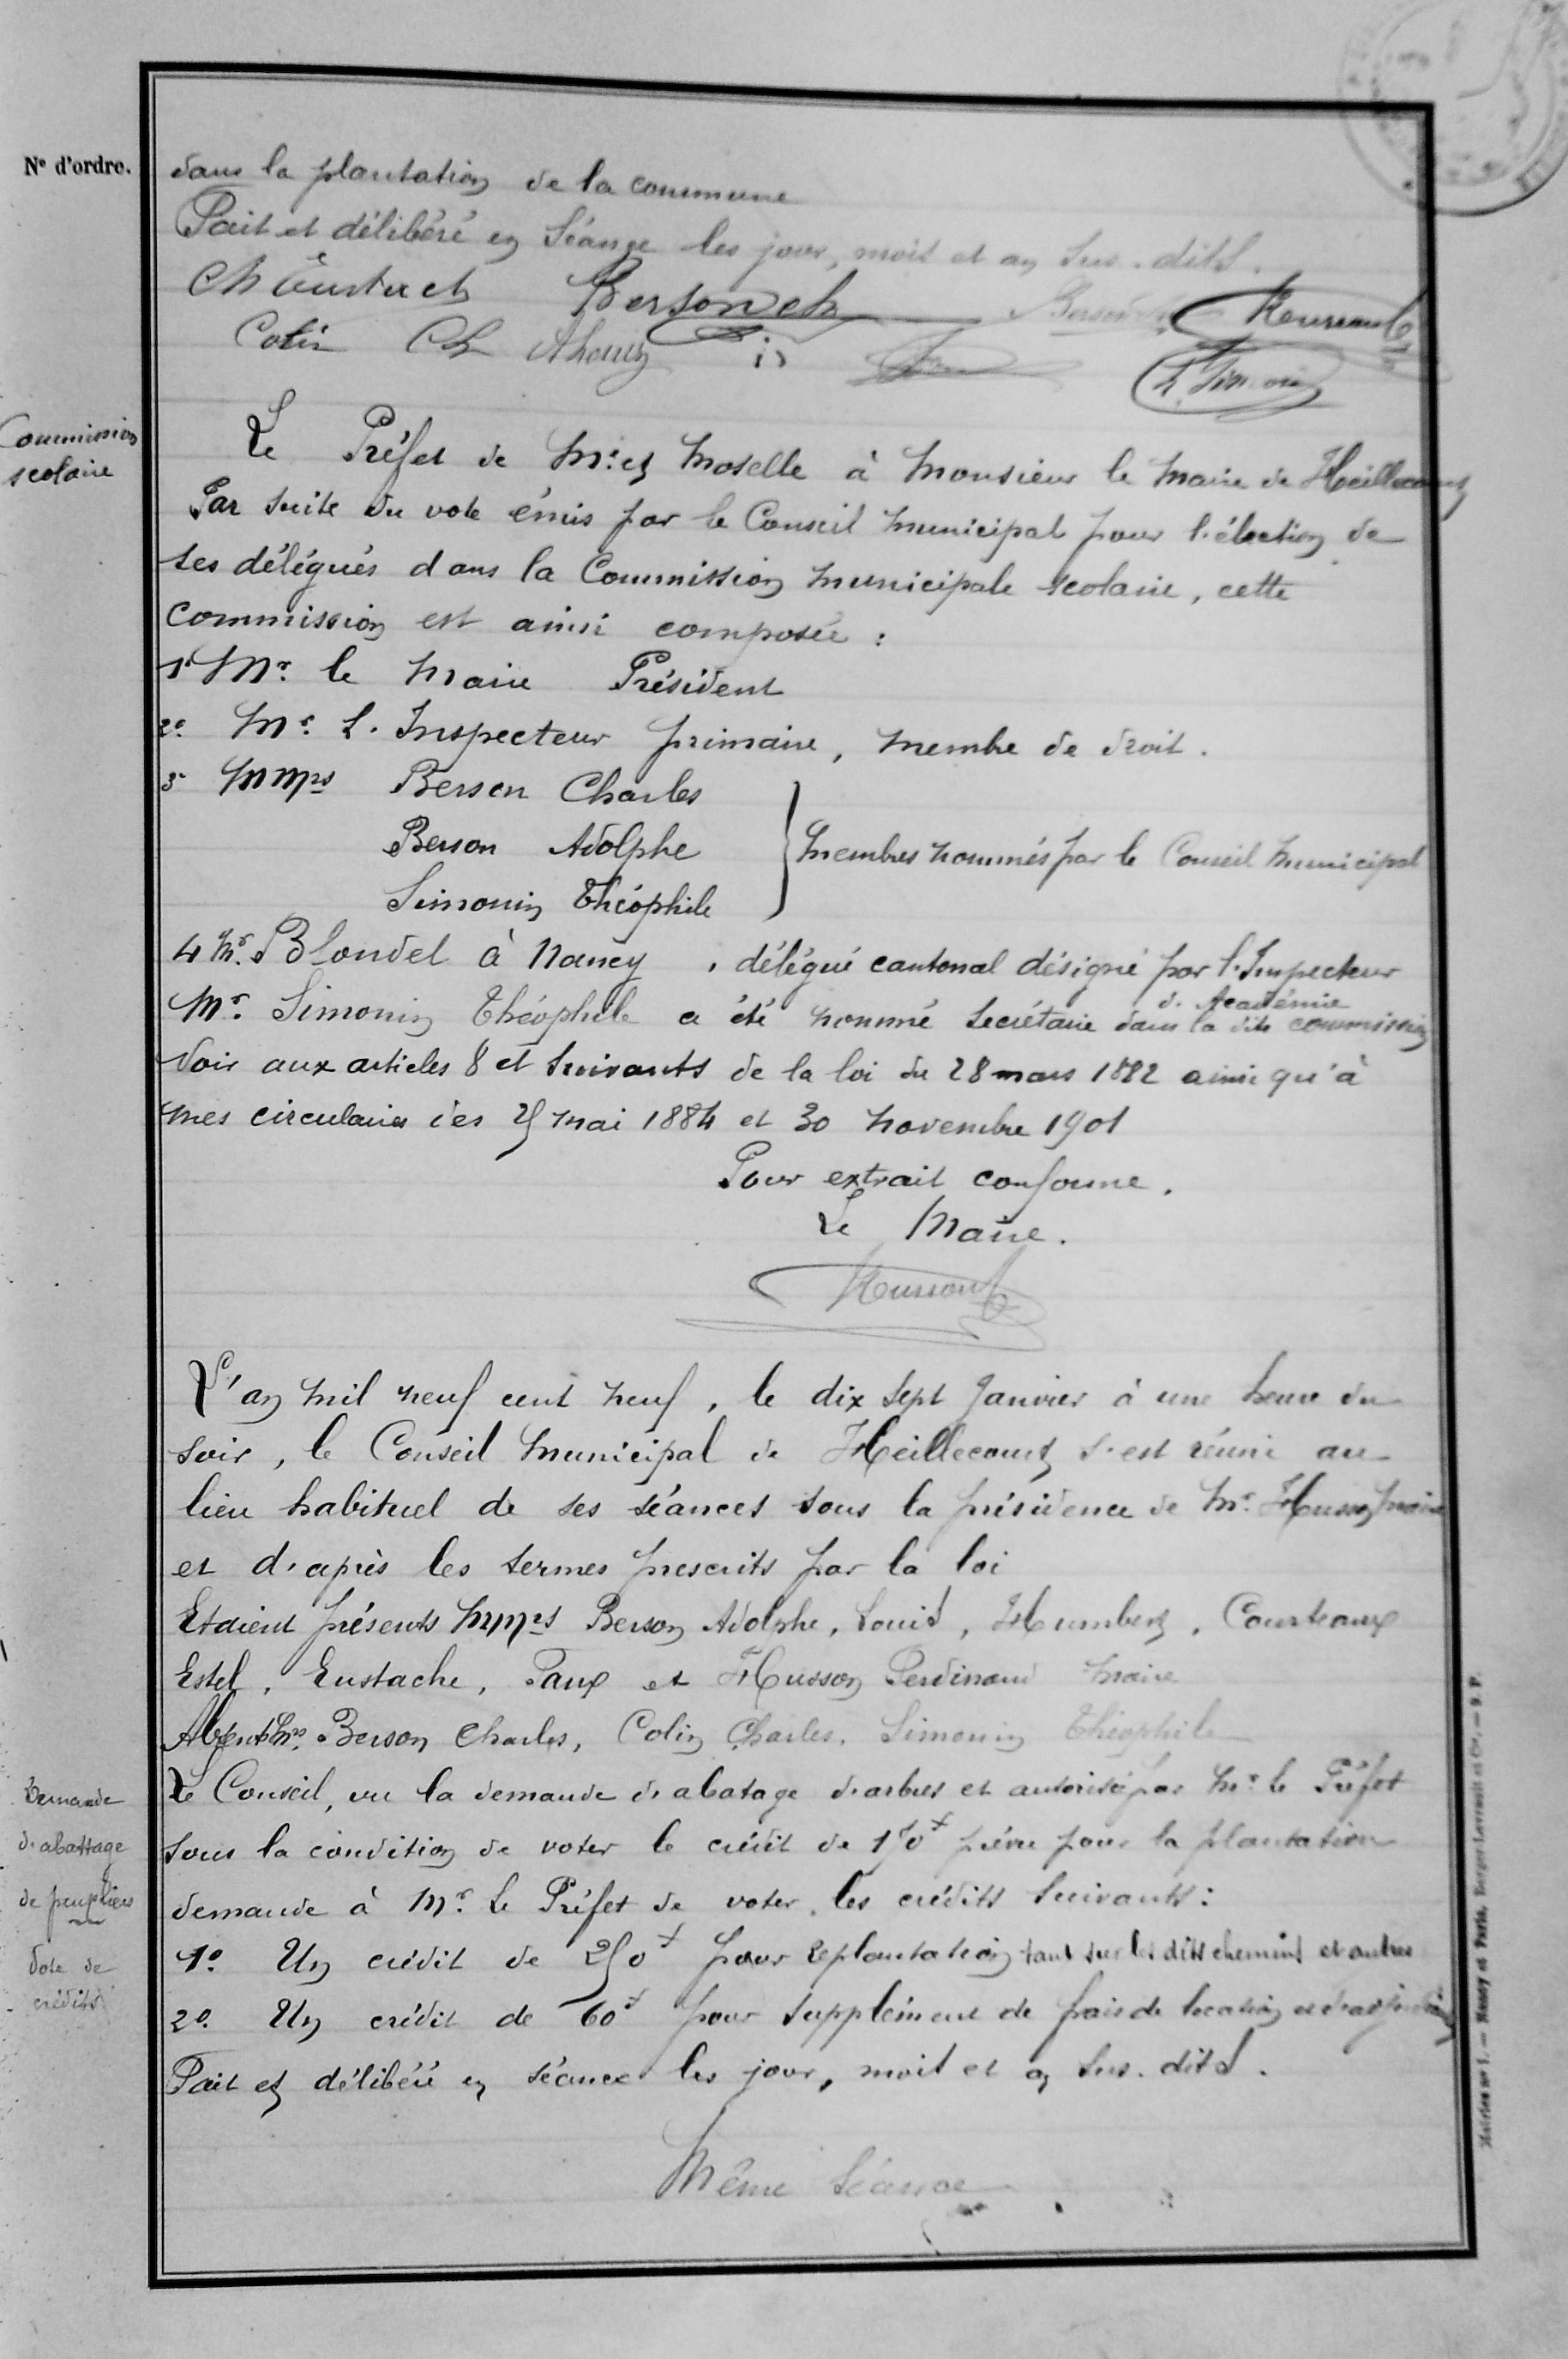 N° d'ordre.
dans la plantation de la commune
Fait et délibéré en Séance les jour, mois et an sus-dits.
Ch Eustach Berson ch
Colin Ch
T. Simonin
Commission
scolaire
Le Préfet de M. et Moselle à Monsieur le Maire de Heillecourt
Par suite du vote émis par le Conseil Municipal pour l'élection de
ses délégués dans la Commission Municipale scolaire, cette
commission est ainsi composée :
1° Mr. le Maire Président
2° Mr. L'Inspecteur primaire, membre de droit.
3° MMrs Berson Charles
Berson Adolphe } Membres nommés par le Conseil Municipal
Simonin Théophile
4 Mr. Blondel à Nancy, délégué cantonal désigné par l'Inspecteur
d'Académie
Mr. Simonin Théophile a été nommé Secrétaire dans la dite commission
Voir aux articles 8 et suivants de la loi du 28 mars 1882 ainsi qu'à
mes circulaires des mai 1884 et 30 Novembre 1901
Pour extrait conforme.
Le Maire.
L'an mil neuf cent neuf, le dix sept Janvier à une heure du
soir, le Conseil Municipal de Heillecourt s'est réuni au
lieu habituel de ses séances sous la présidence de Mr. Husson maire
et d'après les termes prescrits par la loi
Etaient présents MMrs Berson Adolphe, Louis, Humbert, Courteaux
Estel, Eustache, Paux et Husson Ferdinand Maire
Absents Mrs. Berson Charles, Colin Charles, Simonin Théophile
Demande
d'abattage
de peupliers
Vote de
crédits
Le Conseil, vu la demande d'abatage d'arbres et autorisé par Mr. le Préfet
sous la condition de voter le crédit de prévu pour la plantation
demande à Mr. le Préfet de voter les crédits suivants :
1° Un crédit de 250f pour replantation tant sur les dits chemins et autres
2° Un crédit de 60f pour supplément de frais de location et d'adjudication
Fait et délibéré en séance les jour, mois et an sus-dits.
Même Séance
Mairies n° 1. — Nancy et Paris, Berger-Levrault et Cie. — 9 P.